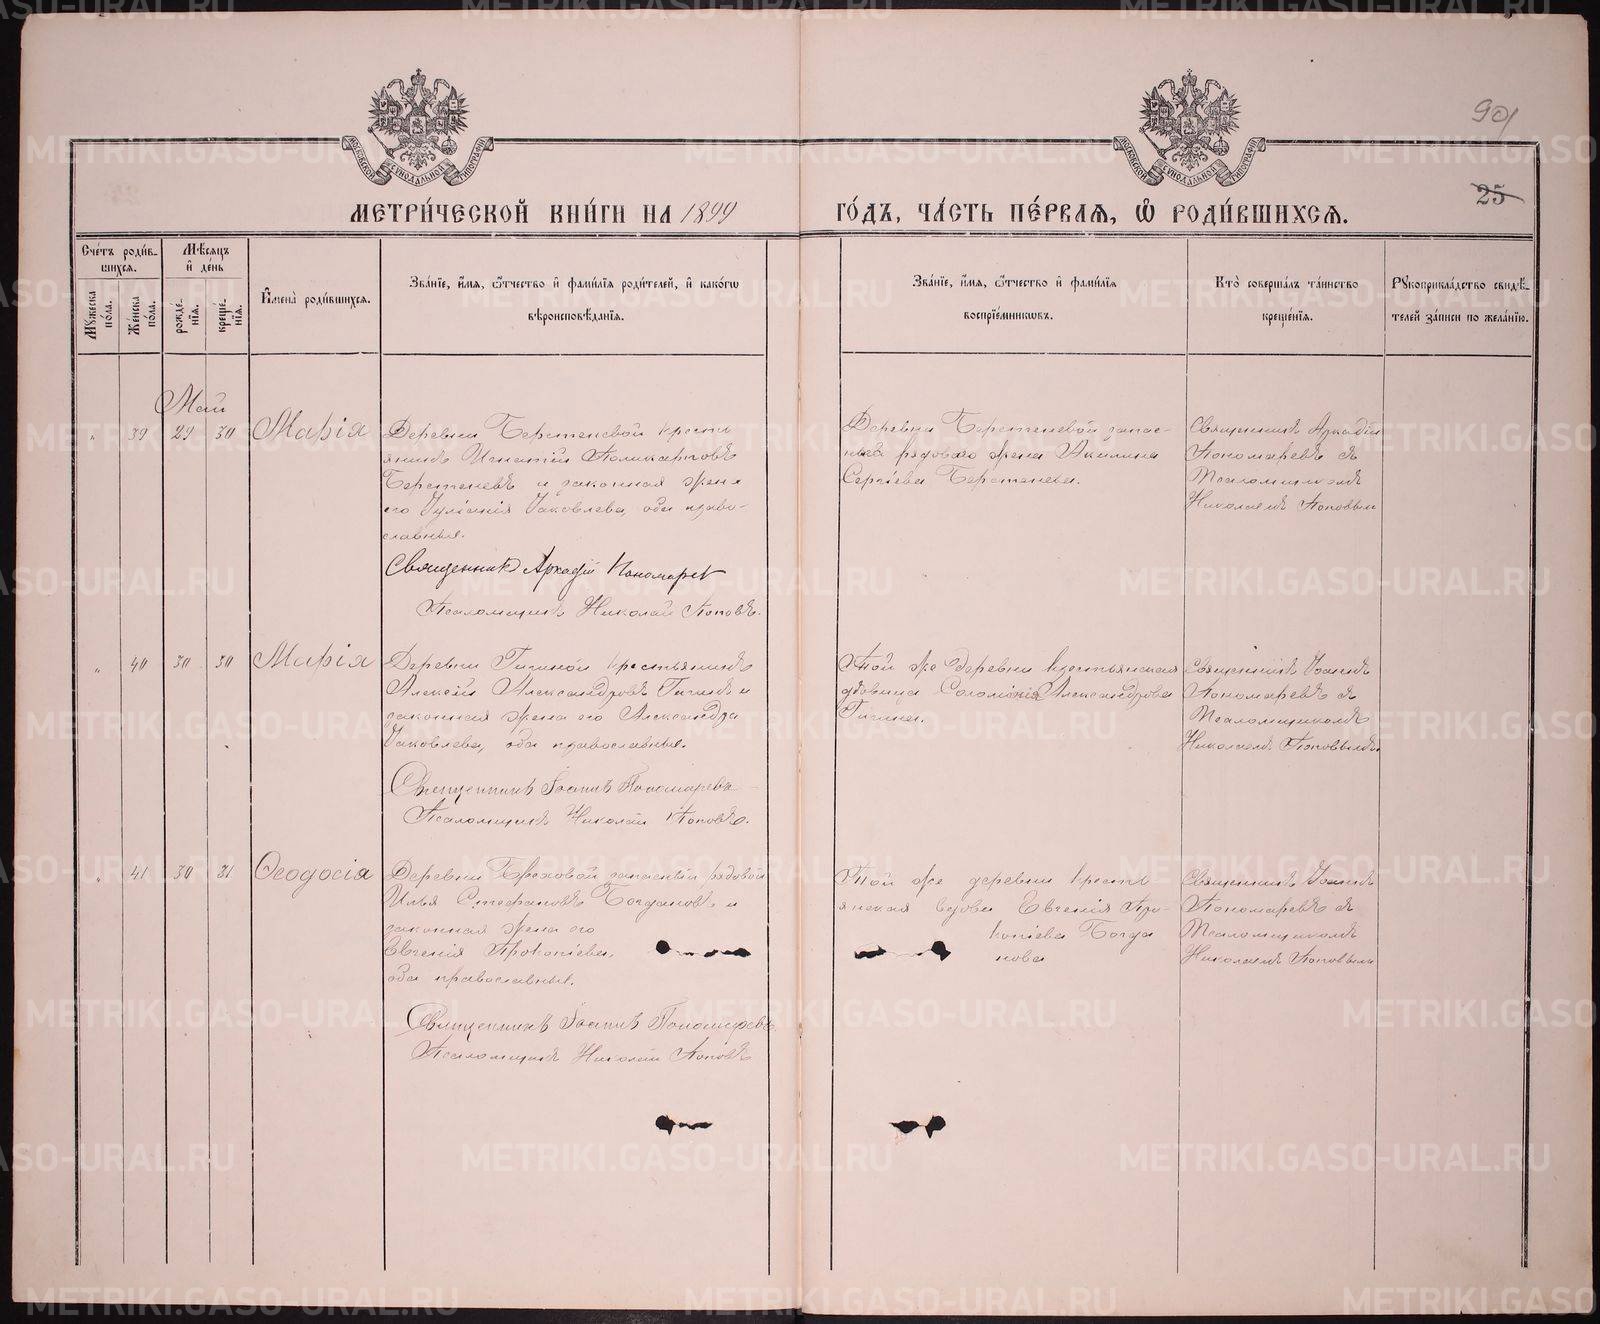 90
25
МОСКОВСКОЙ СѴНОДАЛЬНОЙ ТИПОГРАФІИ
МОСКОВСКОЙ СѴНОДАЛЬНОЙ ТИПОГРАФІИ
МЕТРИ́ЧЕСКОЙ КНИ́ГИ НА 1899 ГО́ДЪ, ЧА́СТЬ ПЕ́РВАѦ, Ѡ҆ РОДИ́ВШИХСѦ.
Сче́тъ роди́в-
шихсѧ.
Мѣ́сѧцъ
и҆ де́нь
Му́жеска
по́ла.
Же́нска
по́ла.
рожде́-
нїѧ.
креще́-
нїѧ.
И҆мена̀ роди́вшихсѧ.
Зва́нїе, и҆́мѧ, ѻ҆́тчество и҆ фами́лїѧ роди́телей, и҆ како́гѡ
вѣроисповѣ́данїѧ.
Зва́нїе, и҆́мѧ, ѻ҆́тчество и҆ фами́лїѧ
воспрїе́мникѡвъ.
Кто̀ соверша́лъ та́инство
креще́нїѧ.
Рꙋкоприкла́дство свидѣ́-
телей за́писи по жела́нїю.
Май
" 39 29 30 Марія
Деревни Берстеневой кресть
янинъ Игнатій Поликарповъ
Берстеневъ и законная жена
его Іуліанія Іаковлева, оба право-
славные.
Священникъ Аркадій Пономарев
Псаломщикъ Николай Поповъ.
Деревни Берстеневой запас-
наго рядоваго жена Акилина
Сергіева Берстенева.
Священникъ Аркадій
Пономаревъ съ
Псаломщикомъ
Николаемъ Поповым
" 40 30 30 Марія
Деревни Гагиной крестьянинъ
Алексій Александровъ Гагинъ и
законная жена его Александра
Іаковлева, оба православные.
Священникъ Іоаннъ Пономаревъ
Псаломщикъ Николай Поповъ.
Той же деревни крестьянская
дѣвица Соломонія Александрова
Гагина.
Священникъ Іоаннъ
Пономаревъ съ
Псаломщикомъ
Николаемъ Поповымъ
" 41 30 31 Ѳеодосія
Деревни Бреховой запасный рядовой
Илья Стефановъ Богдановъ и
законная жена его
Евгенія Прокопіева,
оба православные.
Священникъ Іоаннъ Пономаревъ
Псаломщикъ Николай Поповъ
Той же деревни кресть
янская вдова Евгенія Про-
копіева Богда
нова
Священникъ Іоаннъ
Пономаревъ съ
Псаломщикомъ
Николаемъ Поповым
METRIKI.GASO-URAL.RU